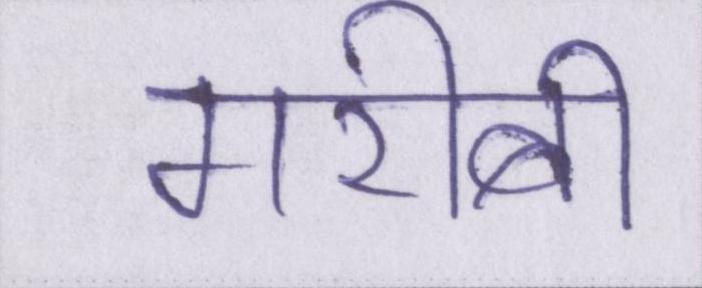 गरीबी